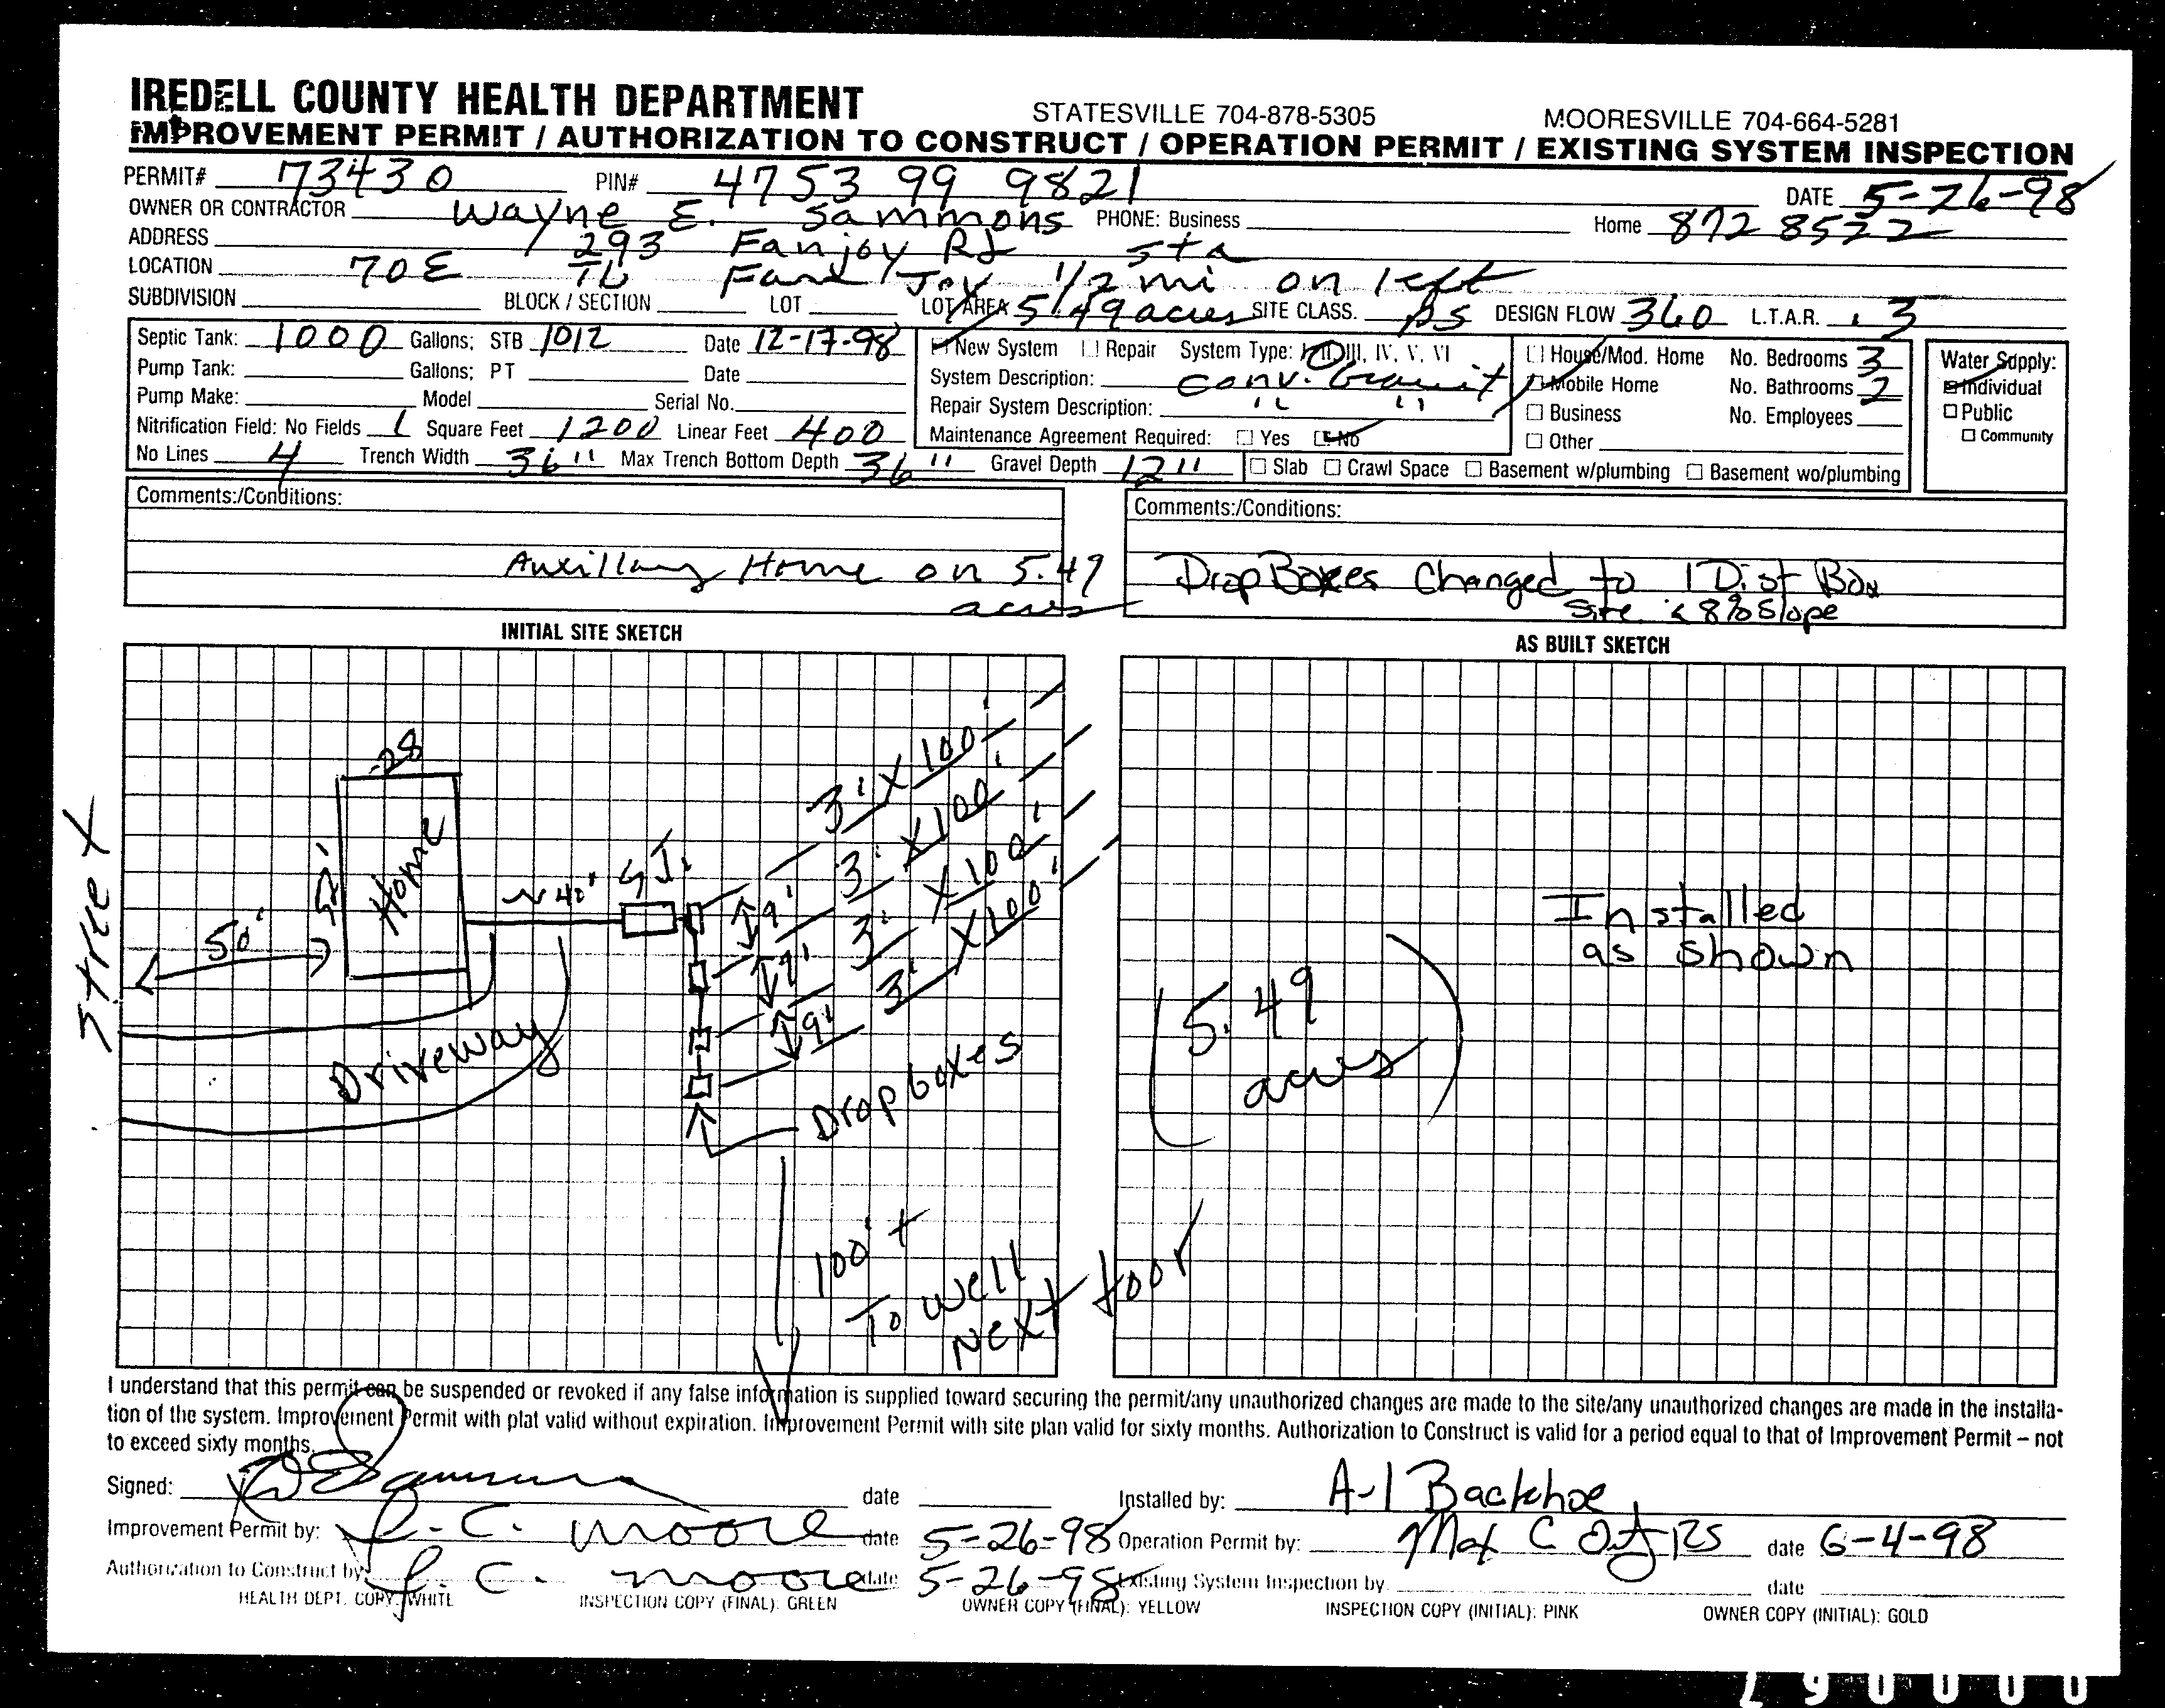 IREDELL COUNTY HEALTH DEPARTMENT STATESVILLE 704-878-5305 MOORESVILLE 704-664-5281
IMPROVEMENT PERMIT / AUTHORIZATION TO CONSTRUCT / OPERATION PERMIT / EXISTING SYSTEM INSPECTION
PERMIT# 73430 PIN# 4753 99 9821 DATE 5-26-98
OWNER OR CONTRACTOR Wayne E. Sammons PHONE: Business Home 872 8522
ADDRESS 293 Fanjoy Rd Sta
LOCATION 70E TL Fan Joy 1/2 mi on left
SUBDIVISION BLOCK / SECTION LOT LOT AREA 5.49 acres SITE CLASS. PS DESIGN FLOW 360 L.T.A.R. .3
Septic Tank: 1000 Gallons; STB 1012 Date 12-17-98
Pump Tank: Gallons; PT Date
Pump Make: Model Serial No.
Nitrification Field: No Fields 1 Square Feet 1200 Linear Feet 400
No Lines 4 Trench Width 36" Max Trench Bottom Depth 36" Gravel Depth 12"
New System Repair System Type: I, II, III, IV, V, VI
System Description: conv. Gravity
Repair System Description: " "
Maintenance Agreement Required: Yes No
House/Mod. Home No. Bedrooms 3
Mobile Home No. Bathrooms 2
Business No. Employees
Other
Slab Crawl Space Basement w/plumbing Basement wo/plumbing
Water Supply:
Individual
Public
Community
Comments:/Conditions:
Auxillary Home on 5.49
acres
Comments:/Conditions:
Drop Boxes Changed to 1 Dist Box
Site < 8% Slope
INITIAL SITE SKETCH
28
Street
50'
52'
Home
~40'
S.T.
3' X 100'
3' X 100'
3' X 100'
3' X 100'
9'
9'
9'
Driveway
Drop boxes
100' +
To well
Next door
AS BUILT SKETCH
Installed
as shown
5.49
acres
I understand that this permit can be suspended or revoked if any false information is supplied toward securing the permit/any unauthorized changes are made to the site/any unauthorized changes are made in the installa-
tion of the system. Improvement Permit with plat valid without expiration. Improvement Permit with site plan valid for sixty months. Authorization to Construct is valid for a period equal to that of Improvement Permit – not
to exceed sixty months.
Signed: date Installed by: A-1 Backhoe
Improvement Permit by: J. C. Moore date 5-26-98 Operation Permit by: Max C RS date 6-4-98
Authorization to Construct by J. C. Moore date 5-26-98 Existing System Inspection by date
HEALTH DEPT. COPY: WHITE INSPECTION COPY (FINAL): GREEN OWNER COPY (FINAL): YELLOW INSPECTION COPY (INITIAL): PINK OWNER COPY (INITIAL): GOLD